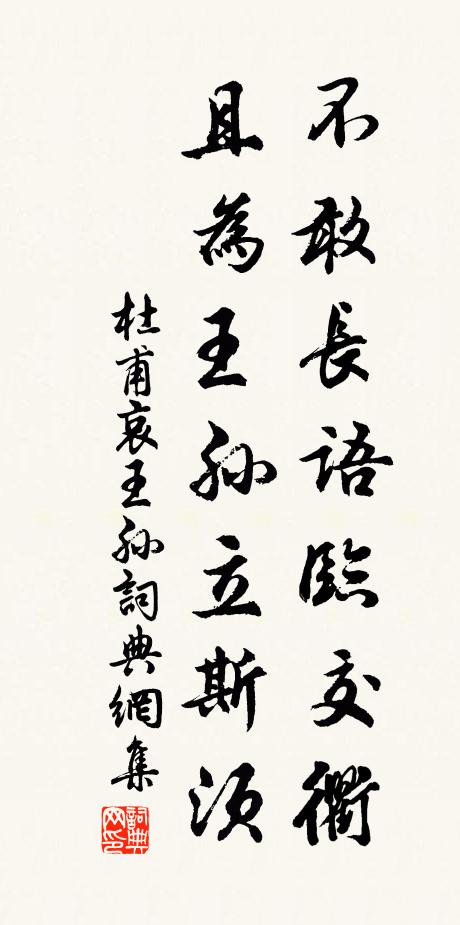 不敢長語臨交衢
且為王孫立斯須
杜甫哀王孫詞典網集
詞典网印